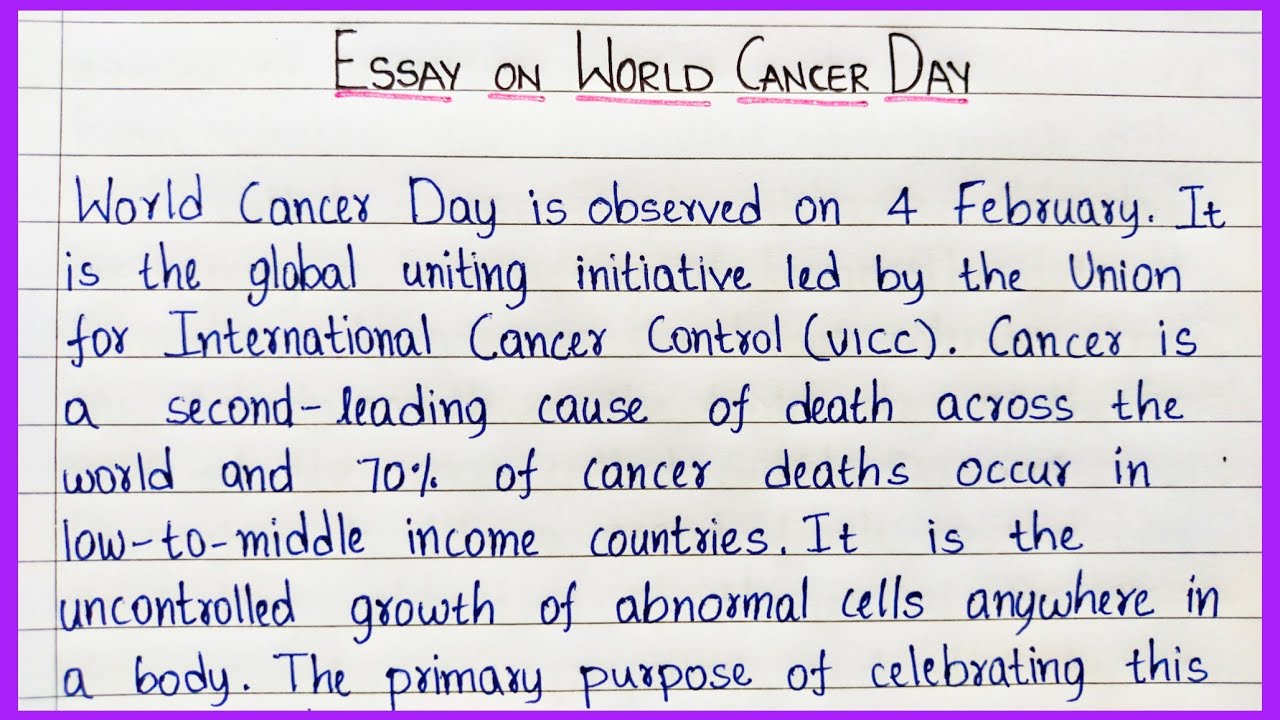 ESSAY ON WORLD CANCER DAY
World Cancer Day is observed on 4 February. It
is the global uniting initiative led by the Union
for International Cancer Control (UICC). Cancer is
a second-leading cause of death across the
world and 70% of cancer deaths occur in
low-to-middle income countries. It is the
uncontrolled growth of abnormal cells anywhere in
a body. The primary purpose of celebrating this